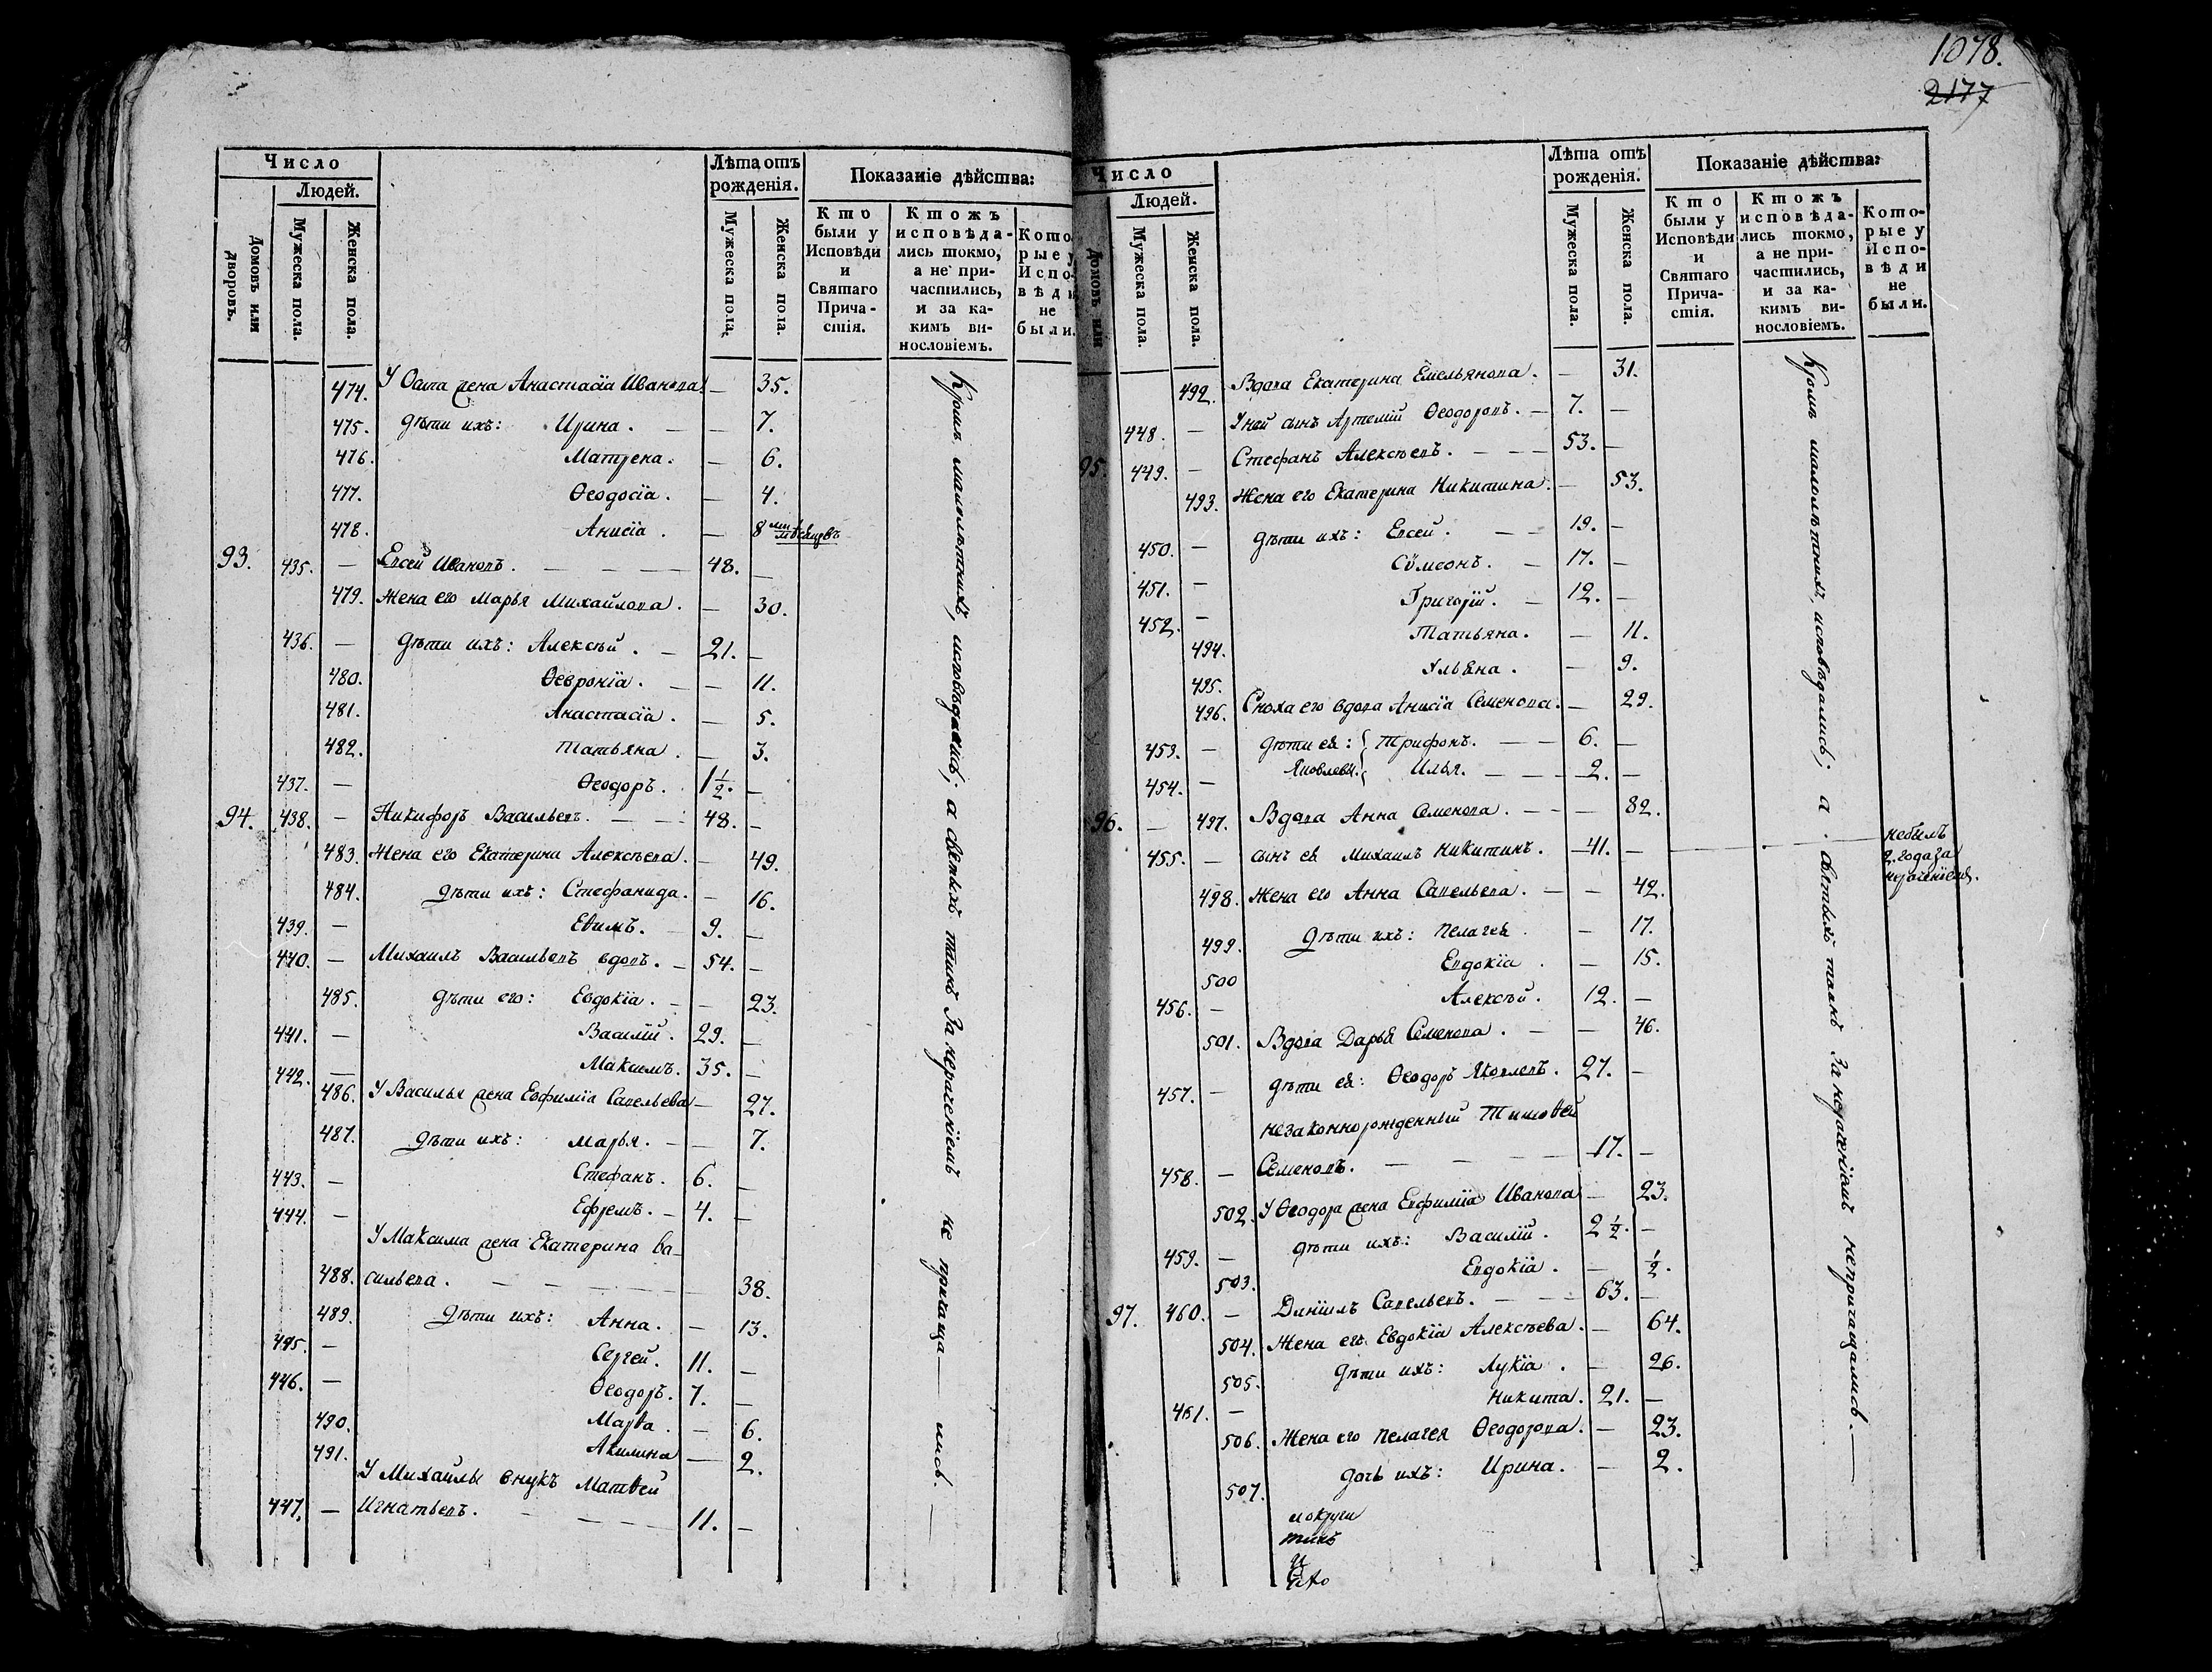 1078.
2177
Число
Людей.
Домовъ или дворовъ.
Мужеска пола.
Женска пола.
Лѣта отъ рожденія.
Мужеска пола.
Женска пола.
Показаніе дѣйства:
Кто были у Исповѣди и Святаго Прича-стія.
Ктожъ исповѣда-лись токмо, а не при-частились, и за ка-кимъ ви-нословіемъ.
Кото рые у Испо-вѣди не были.
474. У Фата жена Анастасіа Иванова — 35.
475. дѣти ихъ: Ирина. — — 7.
476. Матрена. — 6.
477. Ѳеодосіа. — 4.
478. Анисіа. — 8 мѣсяцовъ
93. 435. — Евсей Ивановъ. — — — — 48. —
479. Жена его Марья Михайлова. — 30.
436. — дѣти ихъ: Алексѣй. — 21. —
480. Ѳевронїа. — — 11.
481. Анастасїа. — 5.
482. Татьяна. — 3.
437. — Ѳеодоръ. 1½. —
94. 438. — Никифоръ Васильевъ. — — 48. —
483. Жена его Екатерина Алексѣева. — 49.
484. дѣти ихъ: Стефанида. — 16.
439. — Евимъ. — 9. —
440. — Михаилъ Васильевъ вдовъ. — 54. —
485. дѣти его: Евдокїа. — — 23.
441. — Василїй. 29. —
442. — Максимъ. 35. —
486. У Василья жена Евфимїа Савельева — 27.
487. дѣти ихъ: Марья. — — 7.
443. — Стефанъ. 6. —
444. — Ефремъ. — 4. —
У Максима жена Екатерина Ва-
488. сильева. — — — — — 38.
489. дѣти ихъ: Анна. — 13.
445. — Сергей. 11. —
446. — Ѳеодоръ. 7. —
490. Марѳа. — 6.
491. Акилина — 2.
У Михайлы внукъ Матвей
447. — Игнатьевъ. — — — — 11. —
Кромѣ малолѣтнихъ, исповѣдались; а святыхъ таинъ За нераченїемъ не причаща— лись. —
Число
Людей.
Домовъ или
Мужеска пола.
Женска пола.
Лѣта отъ рожденія.
Мужеска пола.
Женска пола.
Показаніе дѣйства:
Кто были у Исповѣди и Святаго Прича-стія.
Ктожъ исповѣда-лись токмо, а не при-частились, и за ка-кимъ ви-нословіемъ.
Кото-рые у Испо-вѣди не были.
492. Вдова Екатерина Емельянова. — 31.
448. — У ней сынъ Артемїй Ѳеодоровъ. — 7. —
95. 449. — Стефанъ Алексѣевъ. — — — 53. —
493. Жена его Екатерина Никитина. — 53.
450. — дѣти ихъ: Евсей. — — 19. —
451. — Сѵмеонъ. — 17. —
452. — Григорїй. — 12. —
494. Татьяна. — 11.
495. Ульяна. — 9.
496. Сноха его вдова Анисїа Семенова. — 29.
453. — дѣти ея: Трифонъ. — — 6. —
454. — Яковлевы. Илья. — — — 2. —
96. — 497. Вдова Анна Семенова. — — — 82.
455. — сынъ ея Михаилъ Никитинъ. — 41. — небылъ 2. года за нераченїемъ.
498. Жена его Анна Савельева. — — 42.
499. дѣти ихъ: Пелагея. — 17.
500 Евдокїа. — 15.
456. — Алексѣй. 12. —
501. Вдова Дарья Семенова. — — 46.
457. — дѣти ея: Ѳеодоръ Яковлевъ. 27. —
незаконнорожденный Тимоѳей
458. — Семеновъ. — — — — 17. —
502. У Ѳеодора жена Евфимїа Иванова — 23.
459. — дѣти ихъ: Василїй. 2½. —
503. Евдокїа. — ½.
97. 460. — Данїилъ Савельевъ. — — — 63. —
504. Жена его Евдокїа Алексѣева. — 64.
505. дѣти ихъ: Лукїа. — 26.
461. — Никита. 21. —
506. Жена его Пелагея Ѳеодорова. — 23.
507. дочь ихъ: Ирина. — 2.
Кромѣ малолѣтнихъ, исповѣдались; а святыхъ таинъ За нераченїемъ непричащались. —